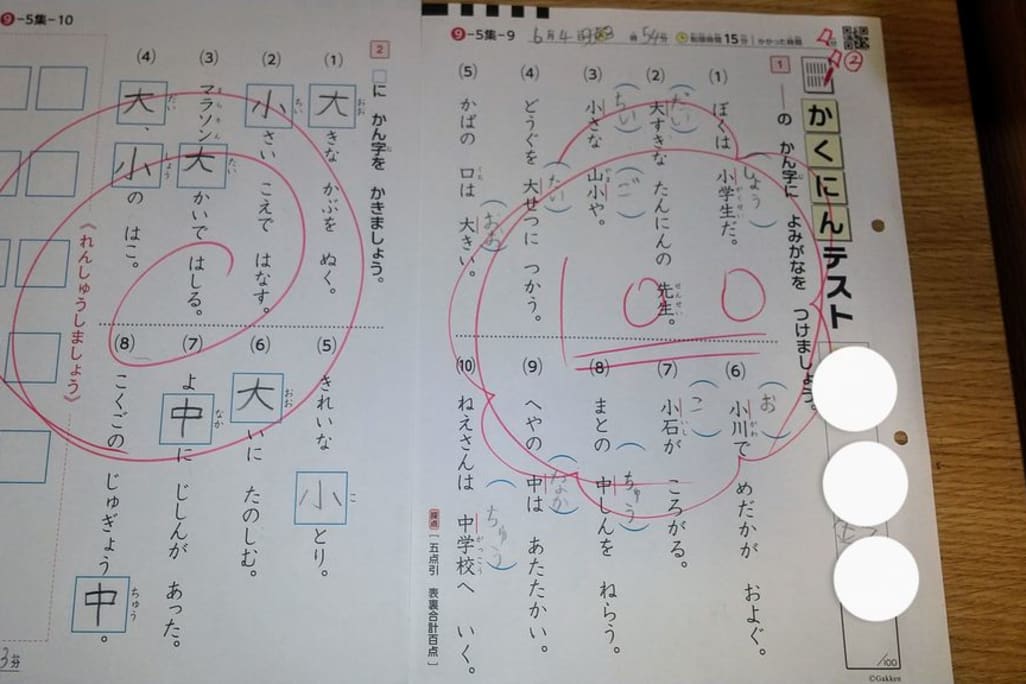 ❾-5集-9
6月4日
54分
標準時間15分
かかった時間
分
②
かくにんテスト
1
――の かん字に よみがなを つけましょう。
(1) ぼくは 小学生だ。
しょう
がくせい
(2) 大すきな たんにんの 先生。
だい
せんせい
(3) 小さな 山小や。
ちい
やま
ご
(4) どうぐを 大せつに つかう。
たい
(5) かばの 口は 大きい。
くち
おお
(6) 小川で めだかが およぐ。
お
がわ
(7) 小石が ころがる。
こ
いし
(8) まとの 中しんを ねらう。
ちゅう
(9) へやの 中は あたたかい。
なか
(10) ねえさんは 中学校へ いく。
ちゅう
がっこう
採点[五点引 表裏合計百点]
100
/100
©Gakken
❾-5集-10
2
□に かん字を かきましょう。
(1) 大きな かぶを ぬく。
おお
(2) 小さい こえで はなす。
ちい
(3) マラソン大かいで はしる。
まらそん
たい
(4) 大、小の はこ。
だい
しょう
(5) きれいな 小とり。
こ
(6) 大いに たのしむ。
おお
(7) よ中に じしんが あった。
なか
(8) こくごの じゅぎょう中。
ちゅう
《れんしゅうしましょう》
3分